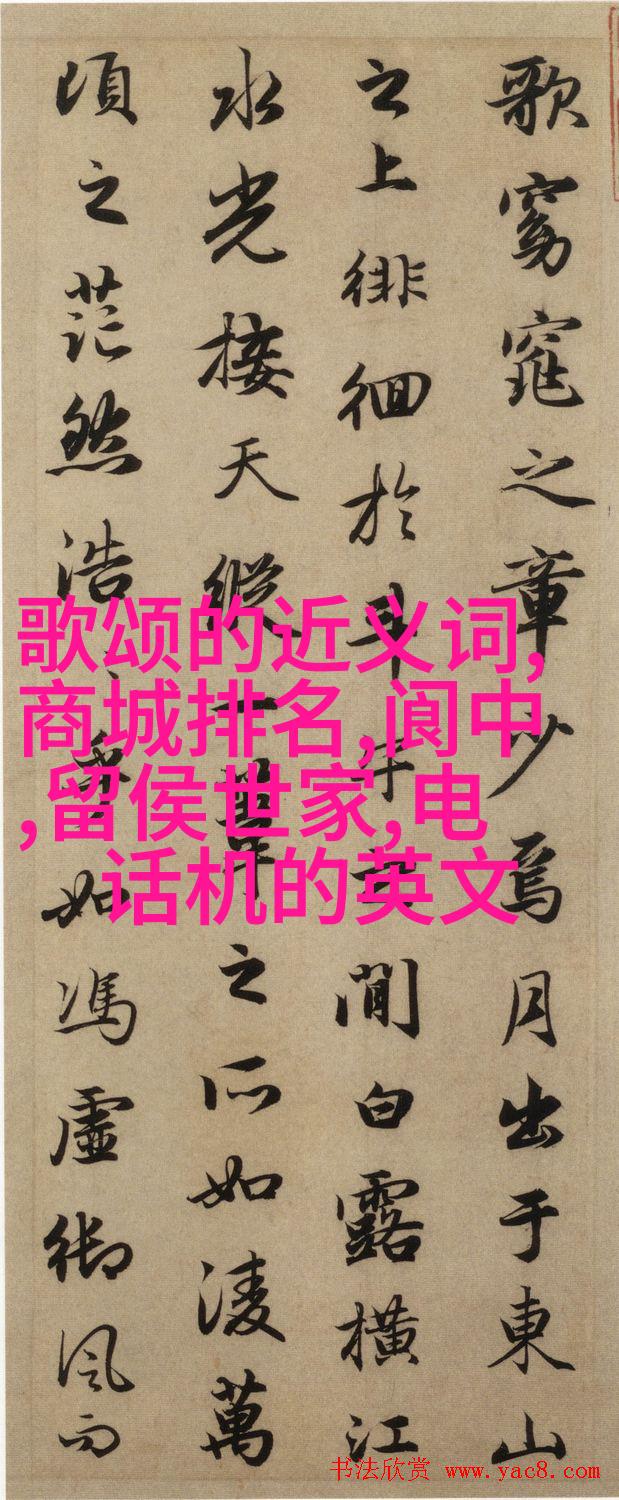 歌窈窕之章少焉月出于東山
之上徘徊於斗牛之間白露橫江
水光接天縱一葦之所如淩萬
頃之茫然浩〻乎如馮虛御風而
歌颂的近义词,
商城排名,阆中
,留侯世家,电
话机的英文
书法欣赏 www.yac8.com